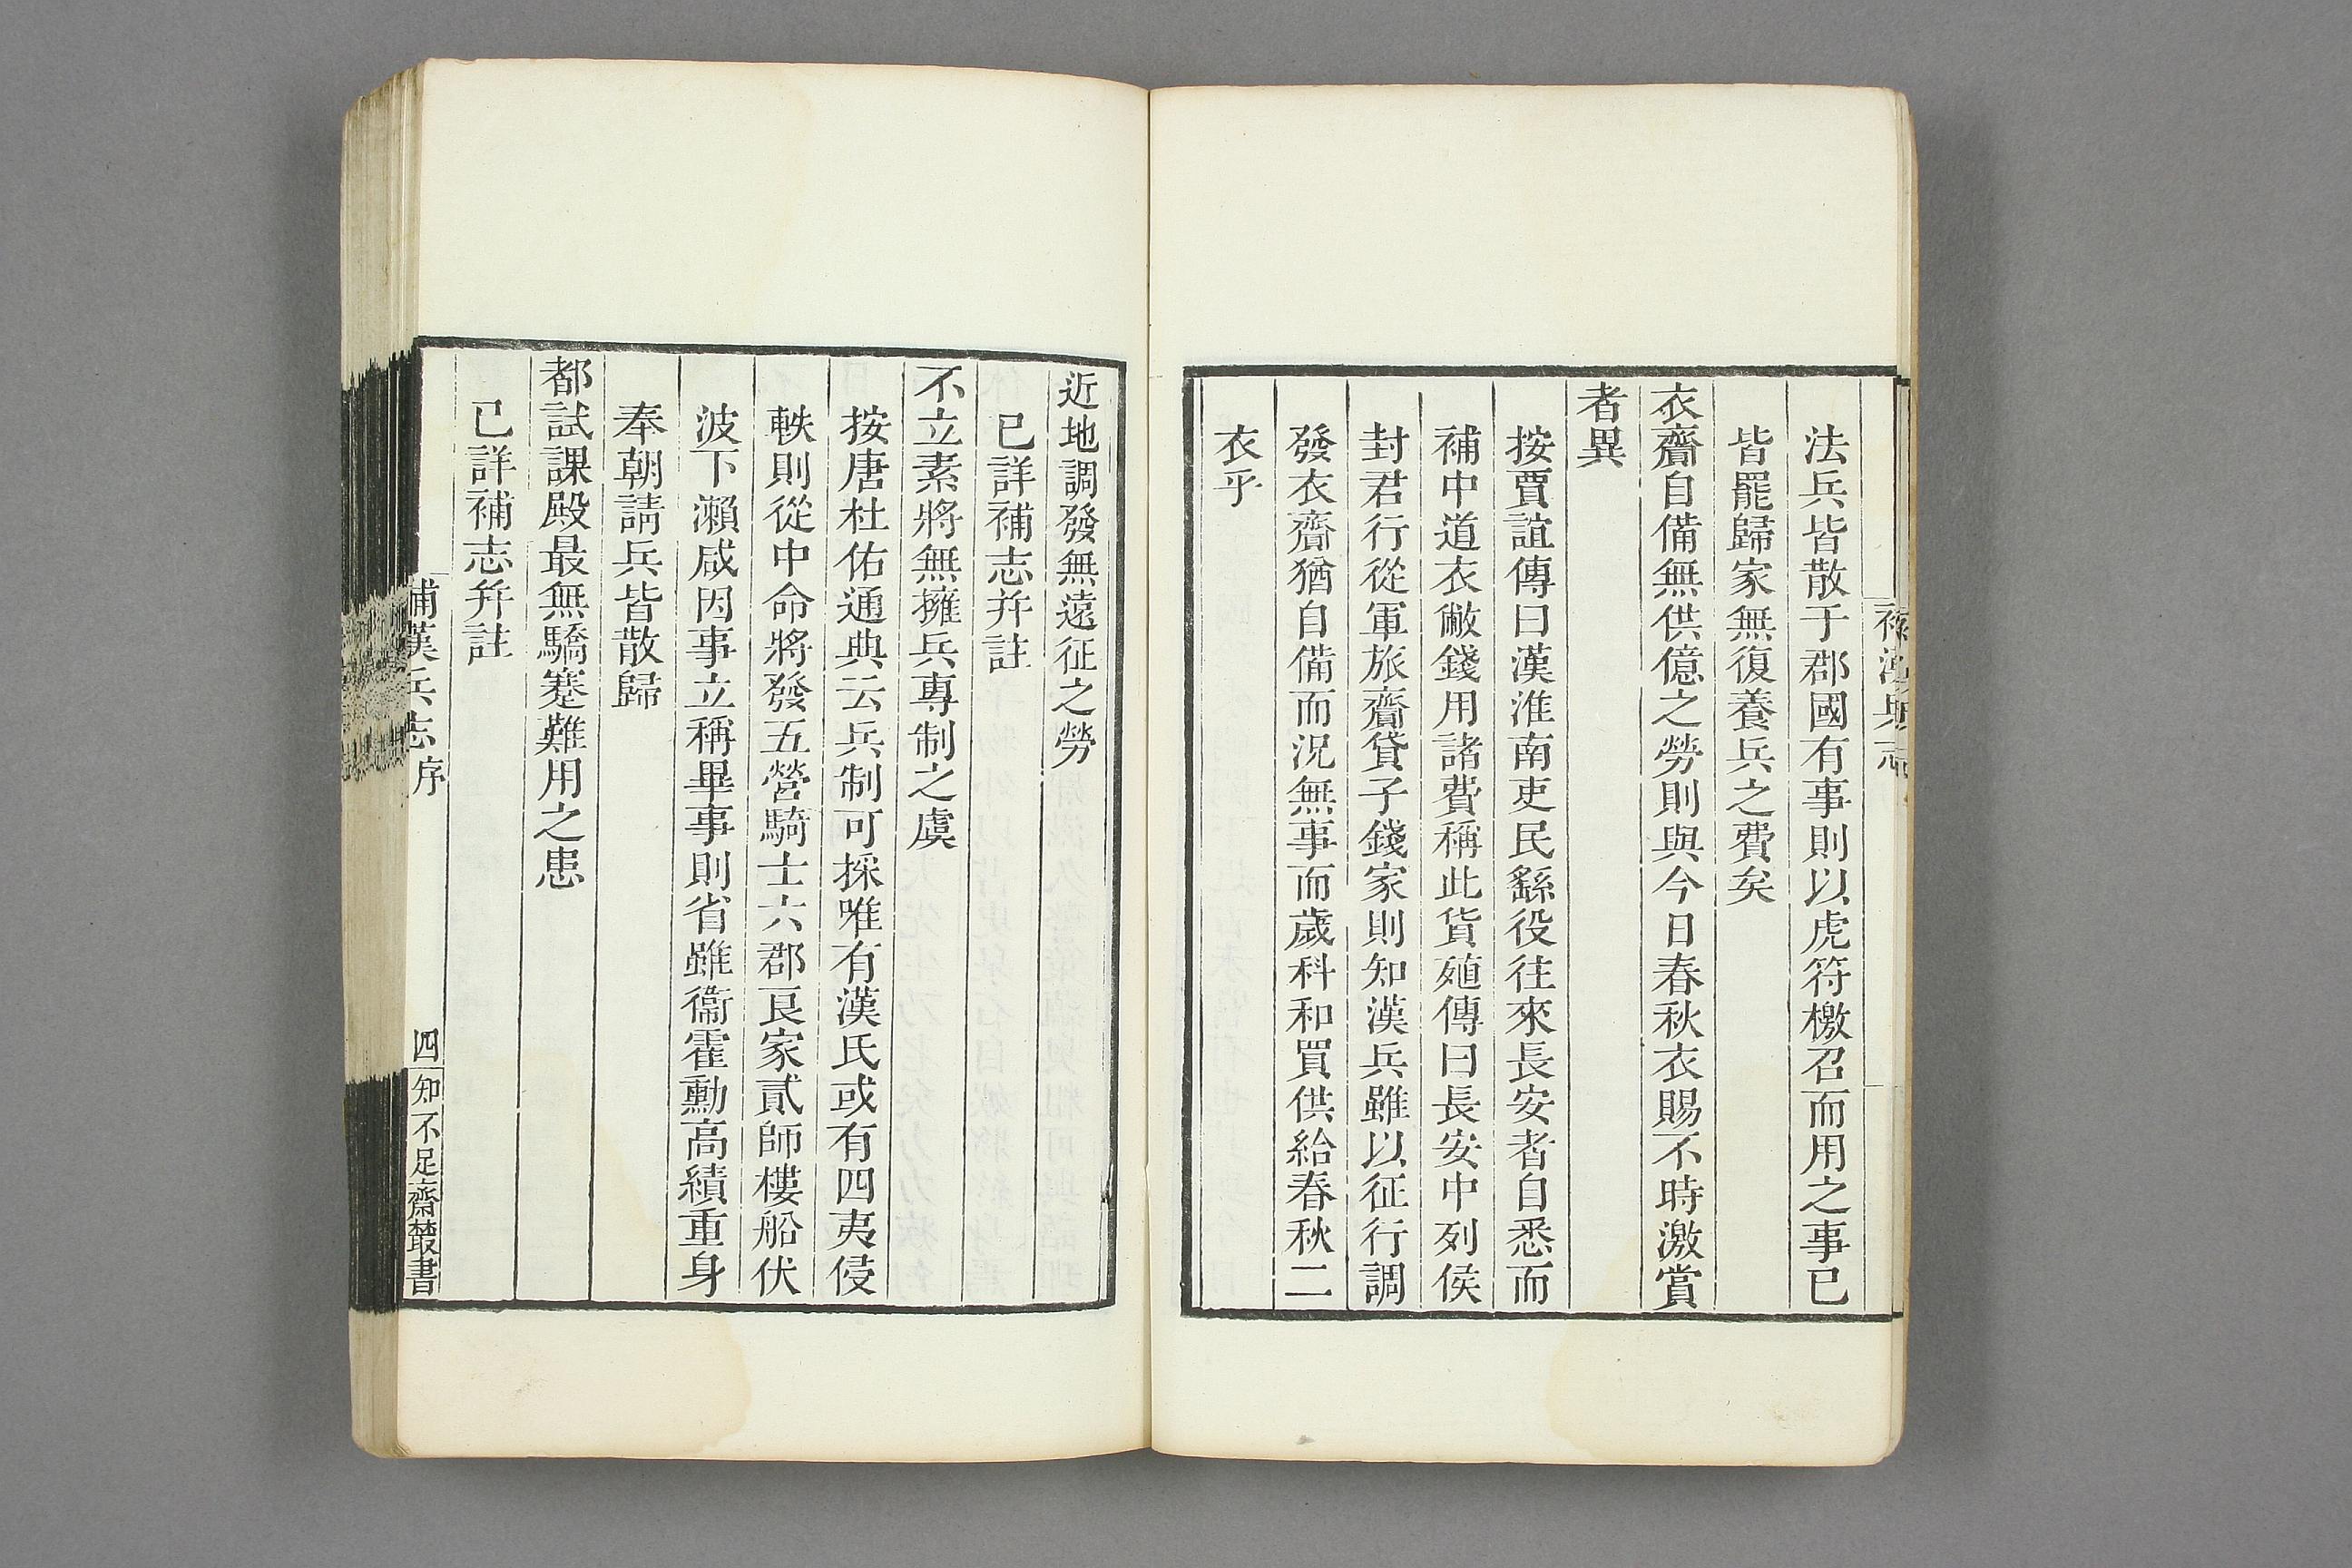 法兵皆散于郡國有事則以虎符檄召而用之事已
皆罷歸家無復養兵之費矣
衣齎自備無供億之勞則與今日春秋衣賜不時激賞
者異
按賈誼傳曰漢淮南吏民繇役往來長安者自悉而
補中道衣敝錢用諸費稱此貨殖傳曰長安中列侯
封君行從軍旅齎貸子錢家則知漢兵雖以征行調
發衣齎猶自備而況無事而歲科和買供給春秋二
衣乎
近地調發無遠征之勞
已詳補志幷註
不立素將無擁兵專制之虞
按唐杜佑通典云兵制可採唯有漢氏或有四夷侵
軼則從中命將發五營騎士六郡良家貳師樓船伏
波下瀨咸因事立稱畢事則省雖衞霍勳高績重身
奉朝請兵皆散歸
都試課殿最無驕蹇難用之患
已詳補志幷註
補漢兵志序
四
知不足齋叢書